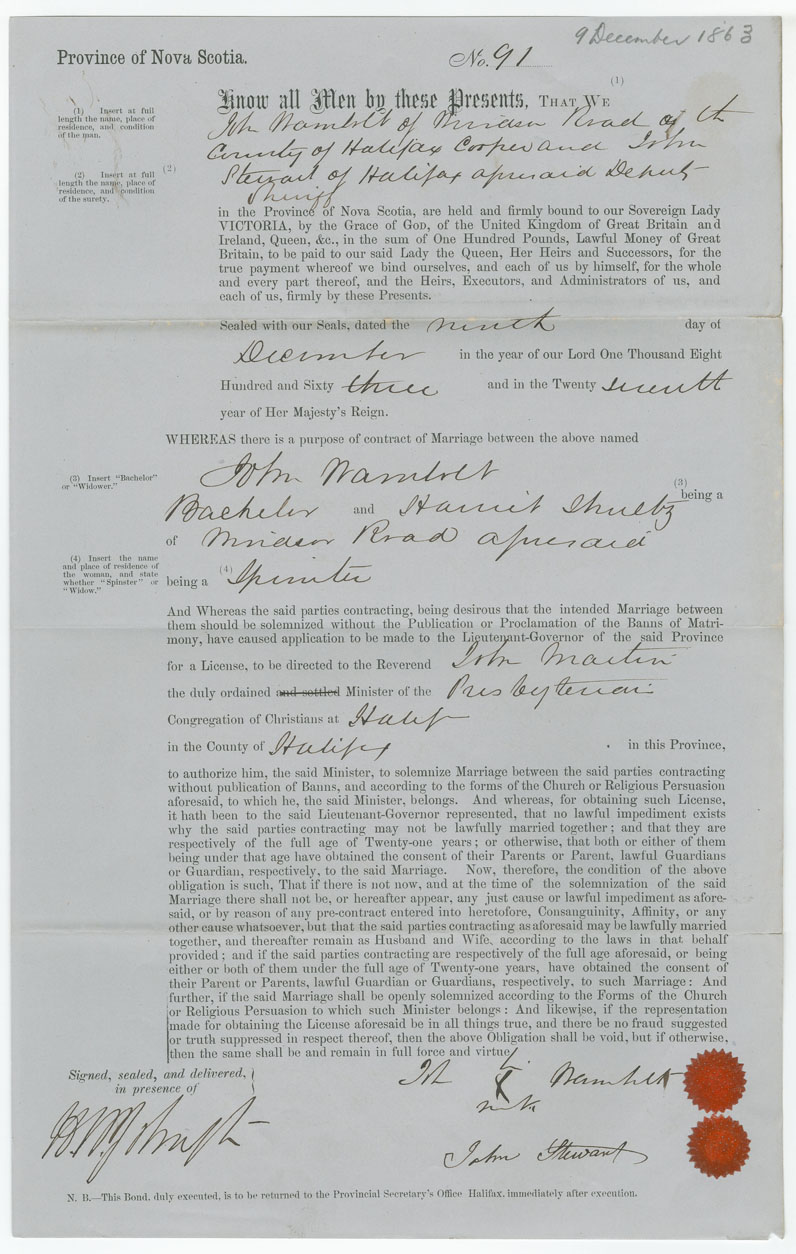 9 December 1863
Province of Nova Scotia.
No. 91
(1)
Know all Men by these Presents, THAT WE
(1) Insert at full
length the name, place of
residence, and condition
of the man.
John Wambolt of Windsor Road in the
County of Halifax Cooper and John
(2)
(2) Insert at full
length the name, place of
residence, and condition
of the surety.
Stewart of Halifax aforesaid Deputy
Sheriff
in the Province of Nova Scotia, are held and firmly bound to our Sovereign Lady
VICTORIA, by the Grace of GOD, of the United Kingdom of Great Britain and
Ireland, Queen, &c., in the sum of One Hundred Pounds, Lawful Money of Great
Britain, to be paid to our said Lady the Queen, Her Heirs and Successors, for the
true payment whereof we bind ourselves, and each of us by himself, for the whole
and every part thereof, and the Heirs, Executors, and Administrators of us, and
each of us, firmly by these Presents.
Sealed with our Seals, dated the ninth day of
December in the year of our Lord One Thousand Eight
Hundred and Sixty three and in the Twenty seventh
year of Her Majesty's Reign.
WHEREAS there is a purpose of contract of Marriage between the above named
John Wambolt
(3) Insert "Bachelor"
or "Widower."
(3)
being a
Bachelor and Harriet Shultz
of Windsor Road aforesaid
(4) Insert the name
and place of residence of
the woman, and state
whether "Spinster" or
"Widow."
being a (4) Spinster
And Whereas the said parties contracting, being desirous that the intended Marriage between
them should be solemnized without the Publication or Proclamation of the Banns of Matri-
mony, have caused application to be made to the Lieutenant-Governor of the said Province
for a License, to be directed to the Reverend John Martin
the duly ordained and settled Minister of the Presbyterian
Congregation of Christians at Halifx
in the County of Halifax in this Province,
to authorize him, the said Minister, to solemnize Marriage between the said parties contracting
without publication of Banns, and according to the forms of the Church or Religious Persuasion
aforesaid, to which he, the said Minister, belongs. And whereas, for obtaining such License,
it hath been to the said Lieutenant-Governor represented, that no lawful impediment exists
why the said parties contracting may not be lawfully married together; and that they are
respectively of the full age of Twenty-one years; or otherwise, that both or either of them
being under that age have obtained the consent of their Parents or Parent, lawful Guardians
or Guardian, respectively, to the said Marriage. Now, therefore, the condition of the above
obligation is such, That if there is not now, and at the time of the solemnization of the said
Marriage there shall not be, or hereafter appear, any just cause or lawful impediment as afore-
said, or by reason of any pre-contract entered into heretofore, Consanguinity, Affinity, or any
other cause whatsoever, but that the said parties contracting as aforesaid may be lawfully married
together, and thereafter remain as Husband and Wife, according to the laws in that behalf
provided; and if the said parties contracting are respectively of the full age aforesaid, or being
either or both of them under the full age of Twenty-one years, have obtained the consent of
their Parent or Parents, lawful Guardian or Guardians, respectively, to such Marriage: And
further, if the said Marriage shall be openly solemnized according to the Forms of the Church
or Religious Persuasion to which such Minister belongs: And likewise, if the representation
made for obtaining the License aforesaid be in all things true, and there be no fraud suggested
or truth suppressed in respect thereof, then the above Obligation shall be void, but if otherwise,
then the same shall be and remain in full force and virtue.
Signed, sealed, and delivered,
in presence of
X Wambolt
John Stewart
N. B.—This Bond, duly executed, is to be returned to the Provincial Secretary's Office Halifax, immediately after execution.